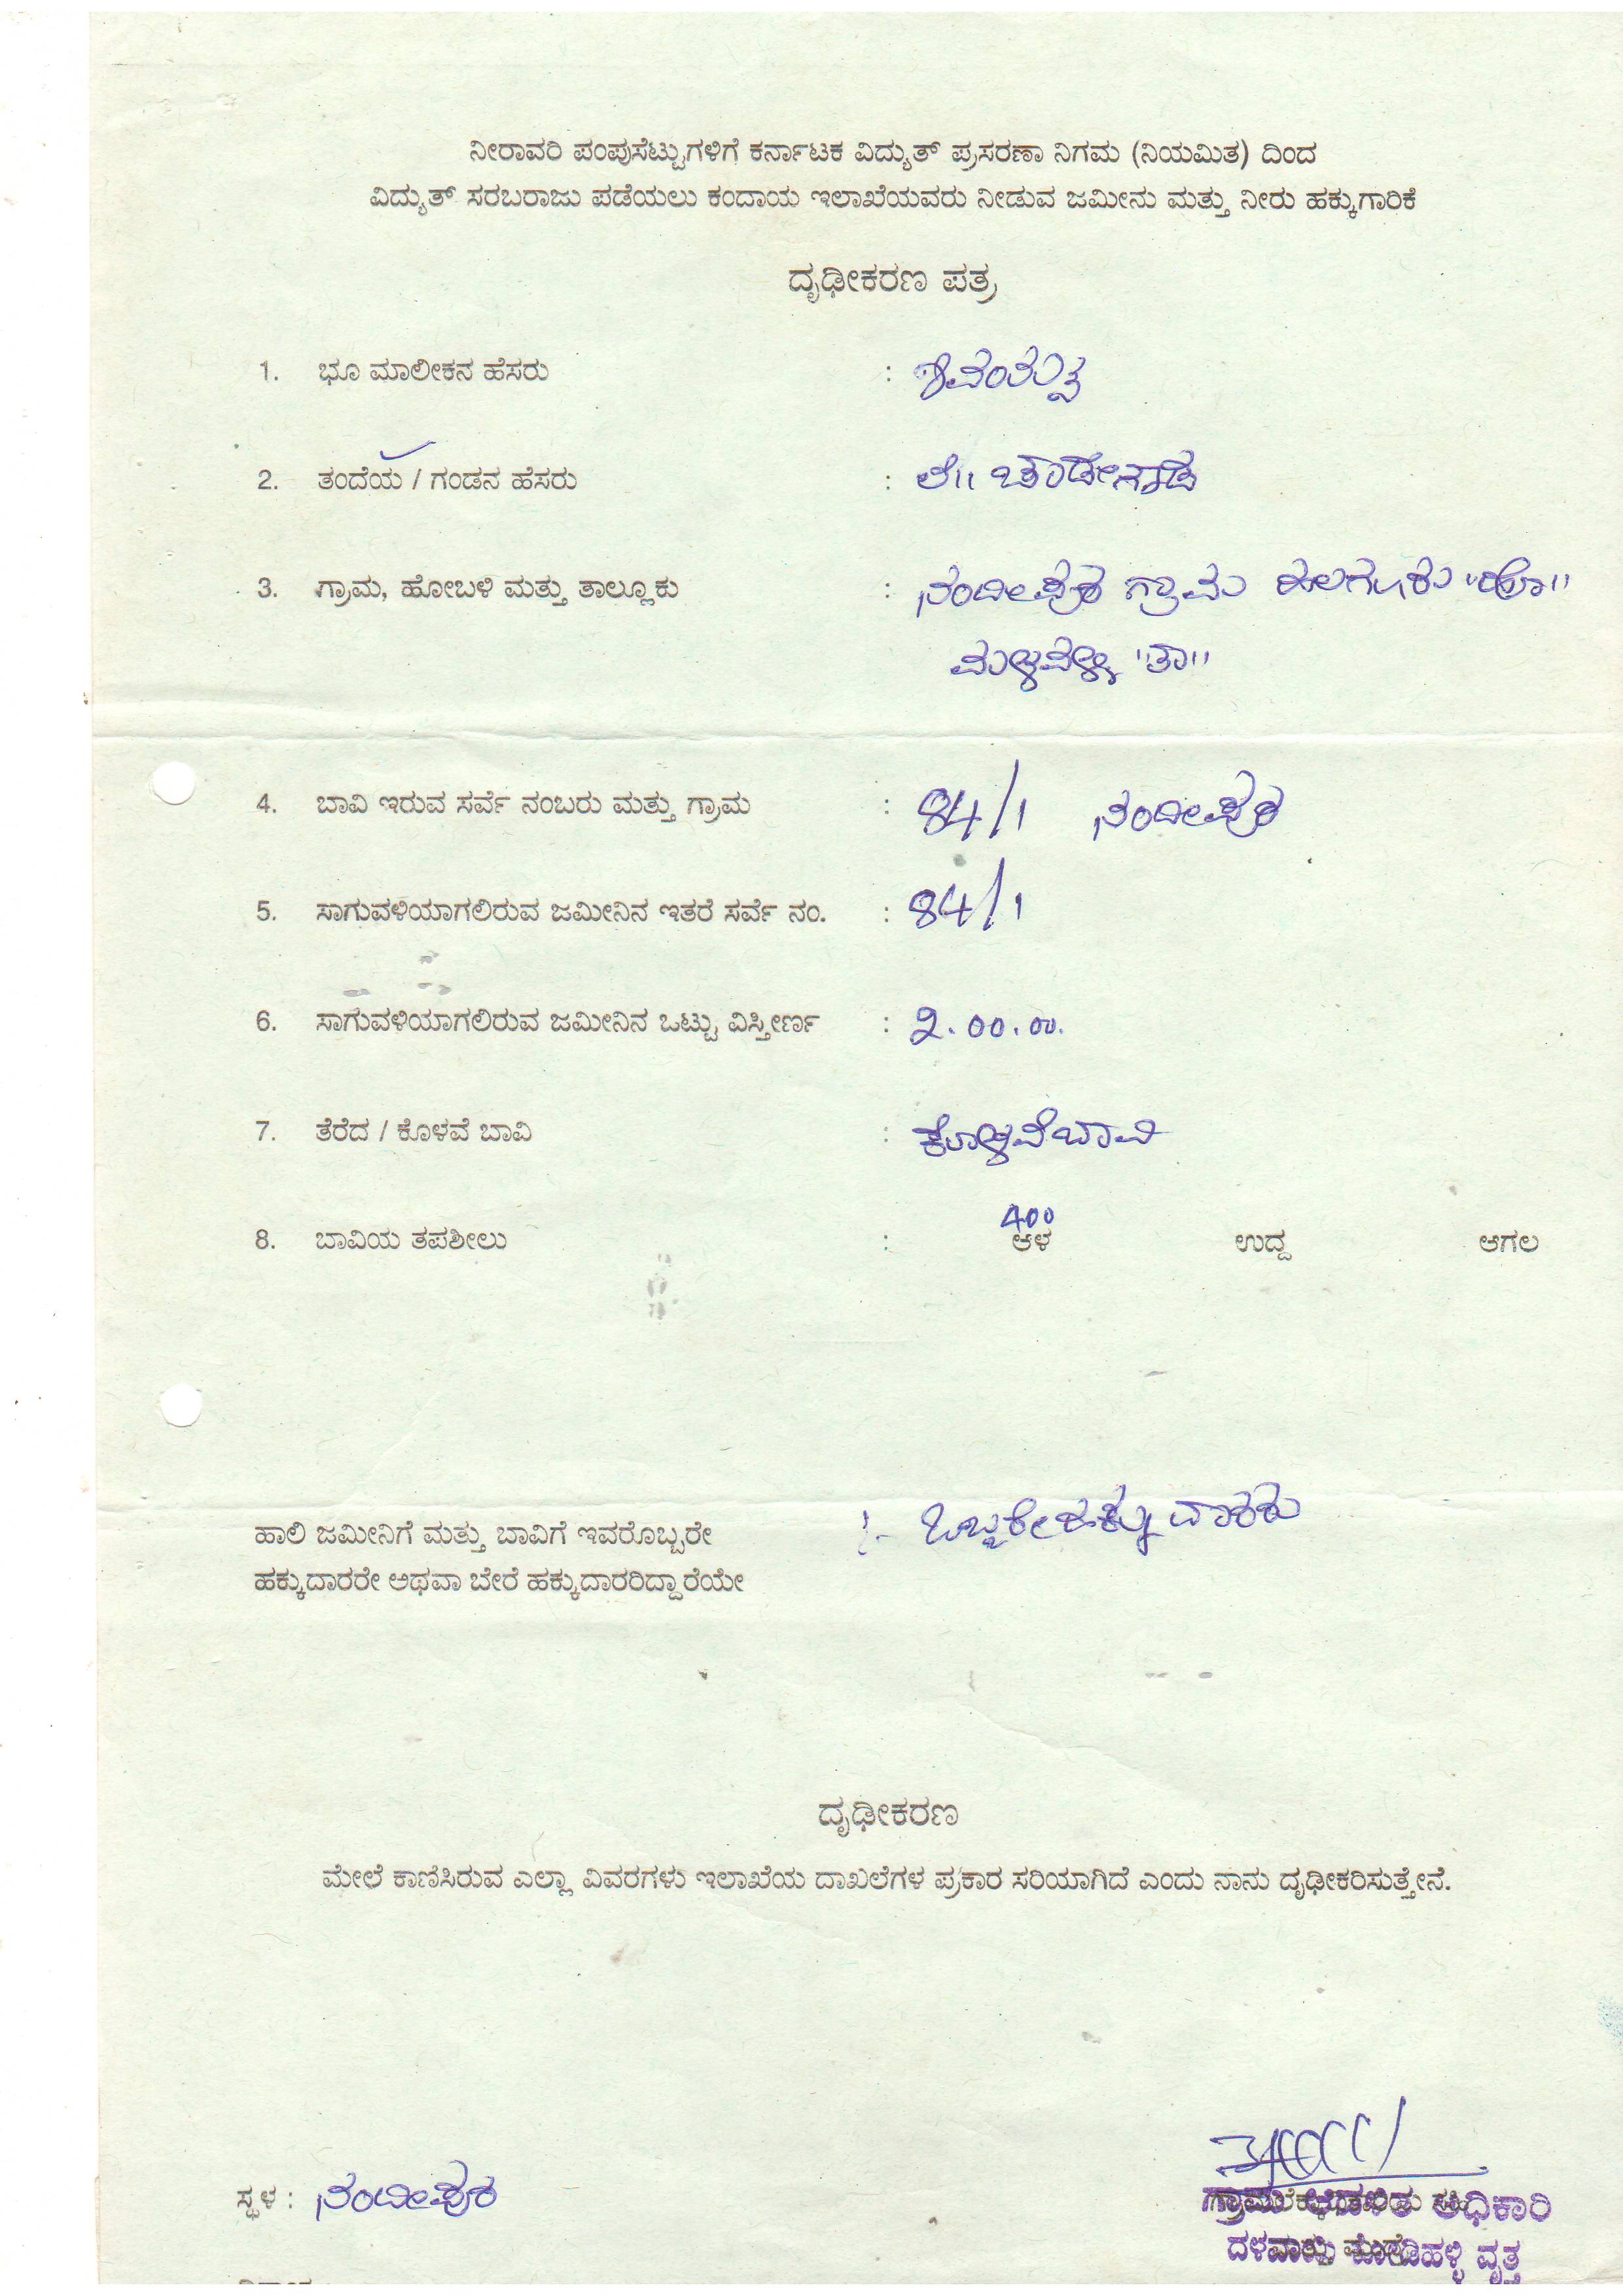 ನೀರಾವರಿ ಪಂಪುಸೆಟ್ಟುಗಳಿಗೆ ಕರ್ನಾಟಕ ವಿದ್ಯುತ್ ಪ್ರಸರಣಾ ನಿಗಮ (ನಿಯಮಿತ) ದಿಂದ
ವಿದ್ಯುತ್ ಸರಬರಾಜು ಪಡೆಯಲು ಕಂದಾಯ ಇಲಾಖೆಯವರು ನೀಡುವ ಜಮೀನು ಮತ್ತು ನೀರು ಹಕ್ಕುಗಾರಿಕೆ
ದೃಢೀಕರಣ ಪತ್ರ
1. ಭೂ ಮಾಲೀಕನ ಹೆಸರು :
2. ತಂದೆಯ / ಗಂಡನ ಹೆಸರು : ಲೇ||
3. ಗ್ರಾಮ, ಹೋಬಳಿ ಮತ್ತು ತಾಲ್ಲೂಕು : ನಂದೀಪುರ ಗ್ರಾಮ ಹಲಗೂರು "ಹೋ"
ಮಳವಳ್ಳಿ "ತಾ"
4. ಬಾವಿ ಇರುವ ಸರ್ವೆ ನಂಬರು ಮತ್ತು ಗ್ರಾಮ : 84/1 ನಂದೀಪುರ
5. ಸಾಗುವಳಿಯಾಗಲಿರುವ ಜಮೀನಿನ ಇತರೆ ಸರ್ವೆ ನಂ. : 84/1
6. ಸಾಗುವಳಿಯಾಗಲಿರುವ ಜಮೀನಿನ ಒಟ್ಟು ವಿಸ್ತೀರ್ಣ : 2.00.00.
7. ತೆರೆದ / ಕೊಳವೆ ಬಾವಿ : ಕೊಳವೆಬಾವಿ
400
8. ಬಾವಿಯ ತಪಶೀಲು : ಆಳ ಉದ್ದ ಆಗಲ
ಹಾಲಿ ಜಮೀನಿಗೆ ಮತ್ತು ಬಾವಿಗೆ ಇವರೊಬ್ಬರೇ :- ಒಬ್ಬರೇ ಹಕ್ಕುದಾರರು
ಹಕ್ಕುದಾರರೇ ಅಥವಾ ಬೇರೆ ಹಕ್ಕುದಾರರಿದ್ದಾರೆಯೇ
ದೃಢೀಕರಣ
ಮೇಲೆ ಕಾಣಿಸಿರುವ ಎಲ್ಲಾ ವಿವರಗಳು ಇಲಾಖೆಯ ದಾಖಲೆಗಳ ಪ್ರಕಾರ ಸರಿಯಾಗಿದೆ ಎಂದು ನಾನು ದೃಢೀಕರಿಸುತ್ತೇನೆ.
ಸ್ಥಳ : ನಂದೀಪುರ
ಗ್ರಾಮ ಆಡಳಿತ ಅಧಿಕಾರಿ
ವೃತ್ತ